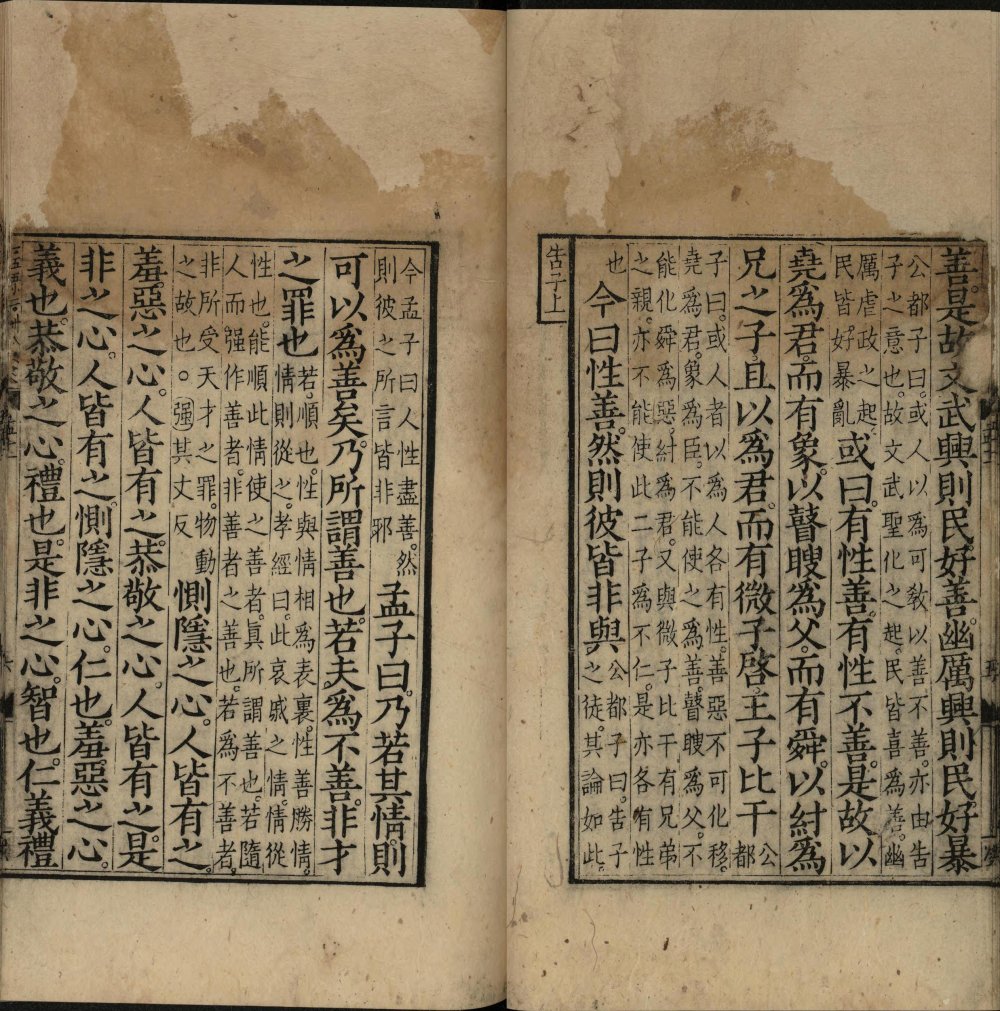 善。是故文武興則民好善。幽厲興則民好暴
公都子曰。或人以爲可敎以善不善。亦由告
子之意也。故文武聖化之起。民皆喜爲善。幽
厲虐政之起。
民皆好暴亂
或曰。有性善。有性不善。是故以
堯爲君。而有象。以瞽瞍爲父。而有舜。以紂爲
兄之子。且以爲君。而有微子啓。王子比干
公
都
子曰。或人者以爲人各有性。善惡不可化移。
堯爲君。象爲臣。不能使之爲善。瞽瞍爲父。不
能化舜爲惡。紂爲君。又與微子比干有兄弟
之親。亦不能使此二子爲不仁。是亦各有性
也
今曰性善。然則彼皆非與
公都子曰。告子
之徒。其論如此。
告子上
今孟子曰人性盡善。然
則彼之所言皆非邪
孟子曰。乃若其情。則
可以爲善矣。乃所謂善也。若夫爲不善。非才
之罪也
若。順也。性與情相爲表裏。性善勝情。
情則從之。孝經曰。此哀戚之情。情從
性也。能順此情使之善者。眞所謂善也。若隨
人而强作善者。非善者之善也。若爲不善者。
非所受天才之罪。物動
之故也。○强其丈反
惻隱之心。人皆有之。
羞惡之心。人皆有之。恭敬之心。人皆有之。是
非之心。人皆有之。惻隱之心。仁也。羞惡之心。
義也。恭敬之心。禮也。是非之心。智也。仁義禮